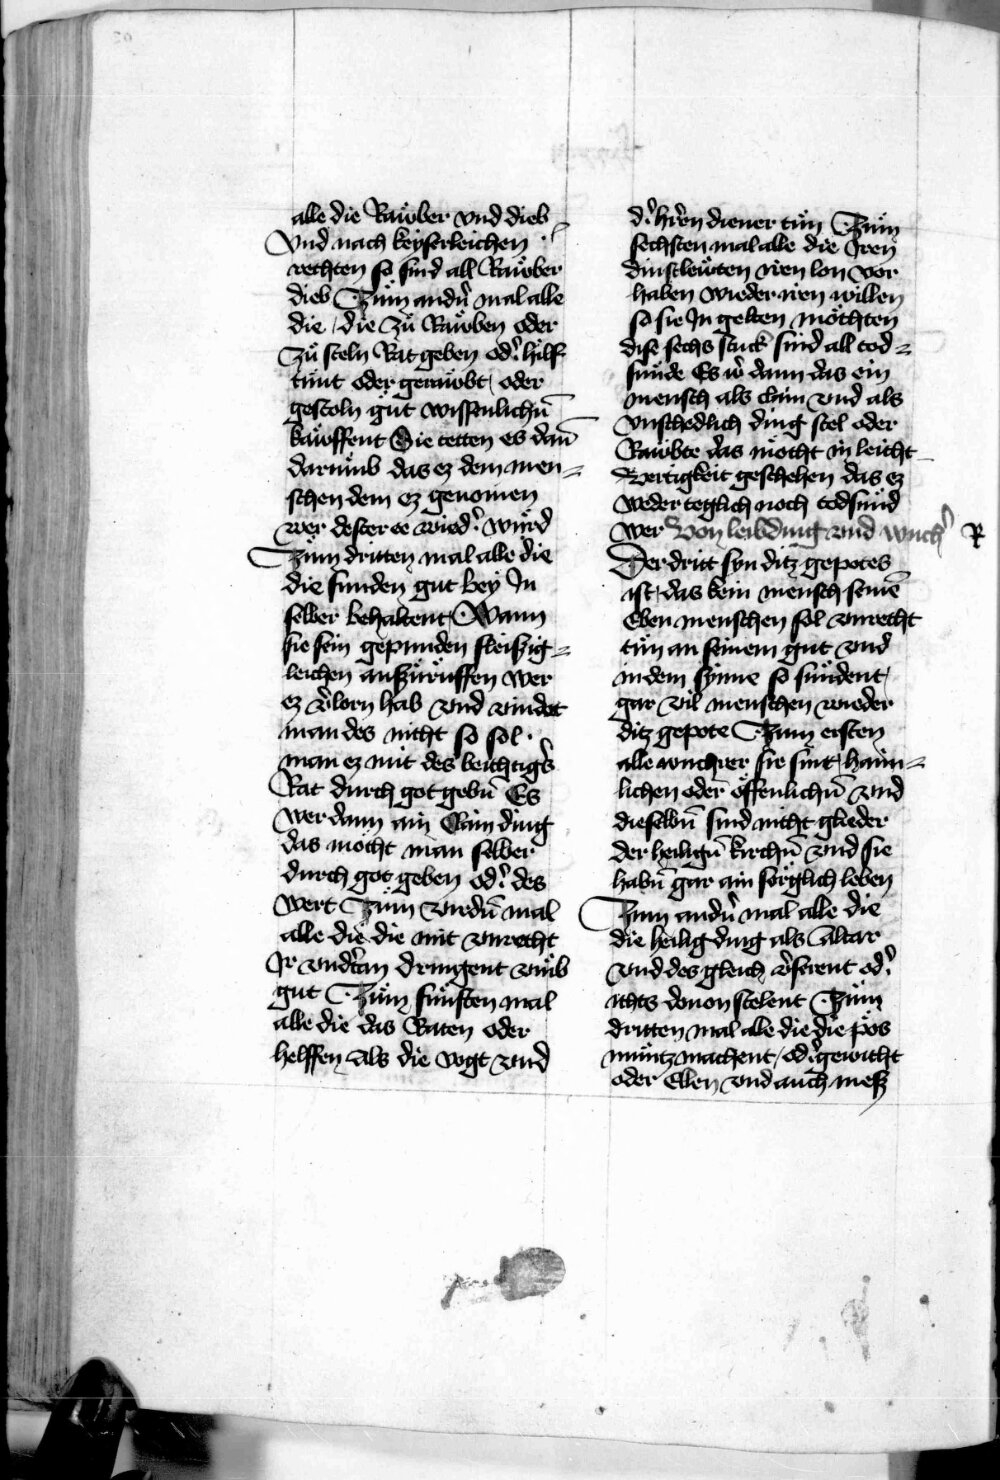 alle die Raůber vnd dieb
Vnd nach keyserleichen
rechten so sind all Raůber
dieb Zům andn̄ mal alle
die / die Zů Raůben oder
Zů steln Rat geben od̾ hilf
tůnt oder geraůbt / oder
gestoln gůt wissenlichn̄
kaůffent Sie tetten es dan̄
darůmb das ez dem men=
schen dem ez genomen
wer dester ee wied̾ wůrd
Zům dritten mal alle die
die funden gut bey In
selber behaltent Wann
sie sein gepunden fleiszig=
leichen auszůrůffen wer
ez v̾lorn hab vnd vindet
man des nicht so sol
man ez mit des beichtigs̾
Rat durch got gebn̄ Es
wer dann ain klain ding
das mőcht man selber
durch got geben od̾ des
wert Zům virdn̄ mal
alle die die mit vnrecht
Ir vndt̾an dringent vmb
gut Zům fůnften mal
alle die das Raten oder
helffen als die vogt vnd
d̾ hr̄en diener tůn Zům
sechsten mal alle die Iren
dinstleůten iren lon vor
haben wieder iren willen
so sie In gelten mőchten
dise sechs stuck sind all tod=
sůnde Es w̾ dann das ein
mensch als clain vnd als
vnschedlich ding stel oder
Raůbte das mőcht in leicht
vertigkeit geschehen das ez
weder teglich noch todsůnd
wer Von leibding vnd wuch̾ R
Der dritt syn ditz gepotes
ist / das kein mensch seinē
Eben menschen sol vnrecht
tůn an seinem gut vnd
in dem synne so sůndent /
gar vil menschen wieder
ditz gepote Zum ersten
alle wuchrer sie sint haim=
lichen oder őffenlichn̄ vnd
dieselbn̄ sind nicht glieder
der heilign̄ kirchn̄ vnd sie
habn̄ gar ain sőrglich leben
Zum andn̄ mal alle die
die heilig ding als Altar
vnd des gleich v̾serent od̾
ichts douon stelent Zům
dritten mal alle die die pős
můntz machent / od̾ gewicht
oder Ellen vnd auch mesz